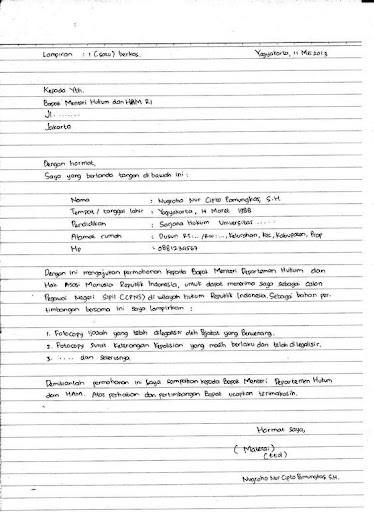 Lampiran : 1 (satu) berkas. Yogyakarta, 11 Mei 2013
Kepada Yth.
Bapak Menteri Hukum dan HAM RI
Jl. ........
Jakarta
Dengan hormat,
Saya yang bertanda tangan di bawah ini :
Nama : Nugroho Nur Cipto Pamungkas, S.H.
Tempat / tanggal lahir : Yogyakarta, 14 Maret 1988
Pendidikan : Sarjana Hukum Universitas .....
Alamat rumah : Dusun RT.../RW..., Kelurahan, Kec, Kabupaten, Prop
Hp : 08812134567
Dengan ini mengajukan permohonan kepada Bapak Menteri Departemen Hukum dan
Hak Asasi Manusia Republik Indonesia, untuk dapat menerima saya sebagai Calon
Pegawai Negeri Sipil (CPNS) di wilayah hukum Republik Indonesia. Sebagai bahan per-
timbangan bersama ini saya lampirkan :
1. Fotocopy Ijazah yang telah dilegalisir oleh Pejabat yang Berwenang.
2. Fotocopy Surat Keterangan Kepolisian yang masih berlaku dan telah dilegalisir.
3. .... dan seterusnya.
Demikianlah permohonan ini saya sampaikan kepada Bapak Menteri Departemen Hukum
dan HAM. Atas perhatian dan pertimbangan Bapak ucapkan terimakasih.
Hormat Saya,
( Materai )
(ttd)
Nugroho Nur Cipto Pamungkas S.H.